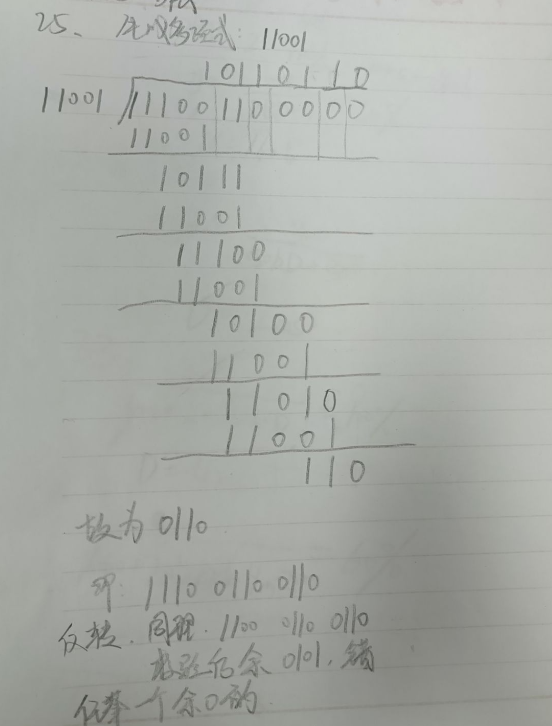 25、生成多项式: 11001
10110110
11001 111001100000
11001
10111
11001
11100
11001
10100
11001
11010
11001
110
故为 0110
即: 1110 0110 0110
反转, 同理. 1100 0110 0110
余 0101, 错
一个余0的